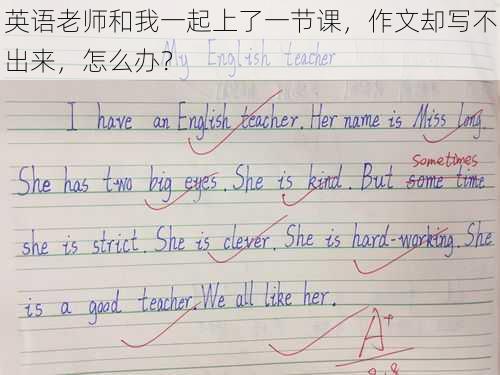 英语老师和我一起上了一节课，作文却写不
出来，怎么办？
My English teacher
I have an English teacher. Her name is Miss long.
sometimes
She has two big eyes. She is kind. But some time
she is strict. She is clever. She is hard-working. She
is a good teacher. We all like her.
A+
9.8